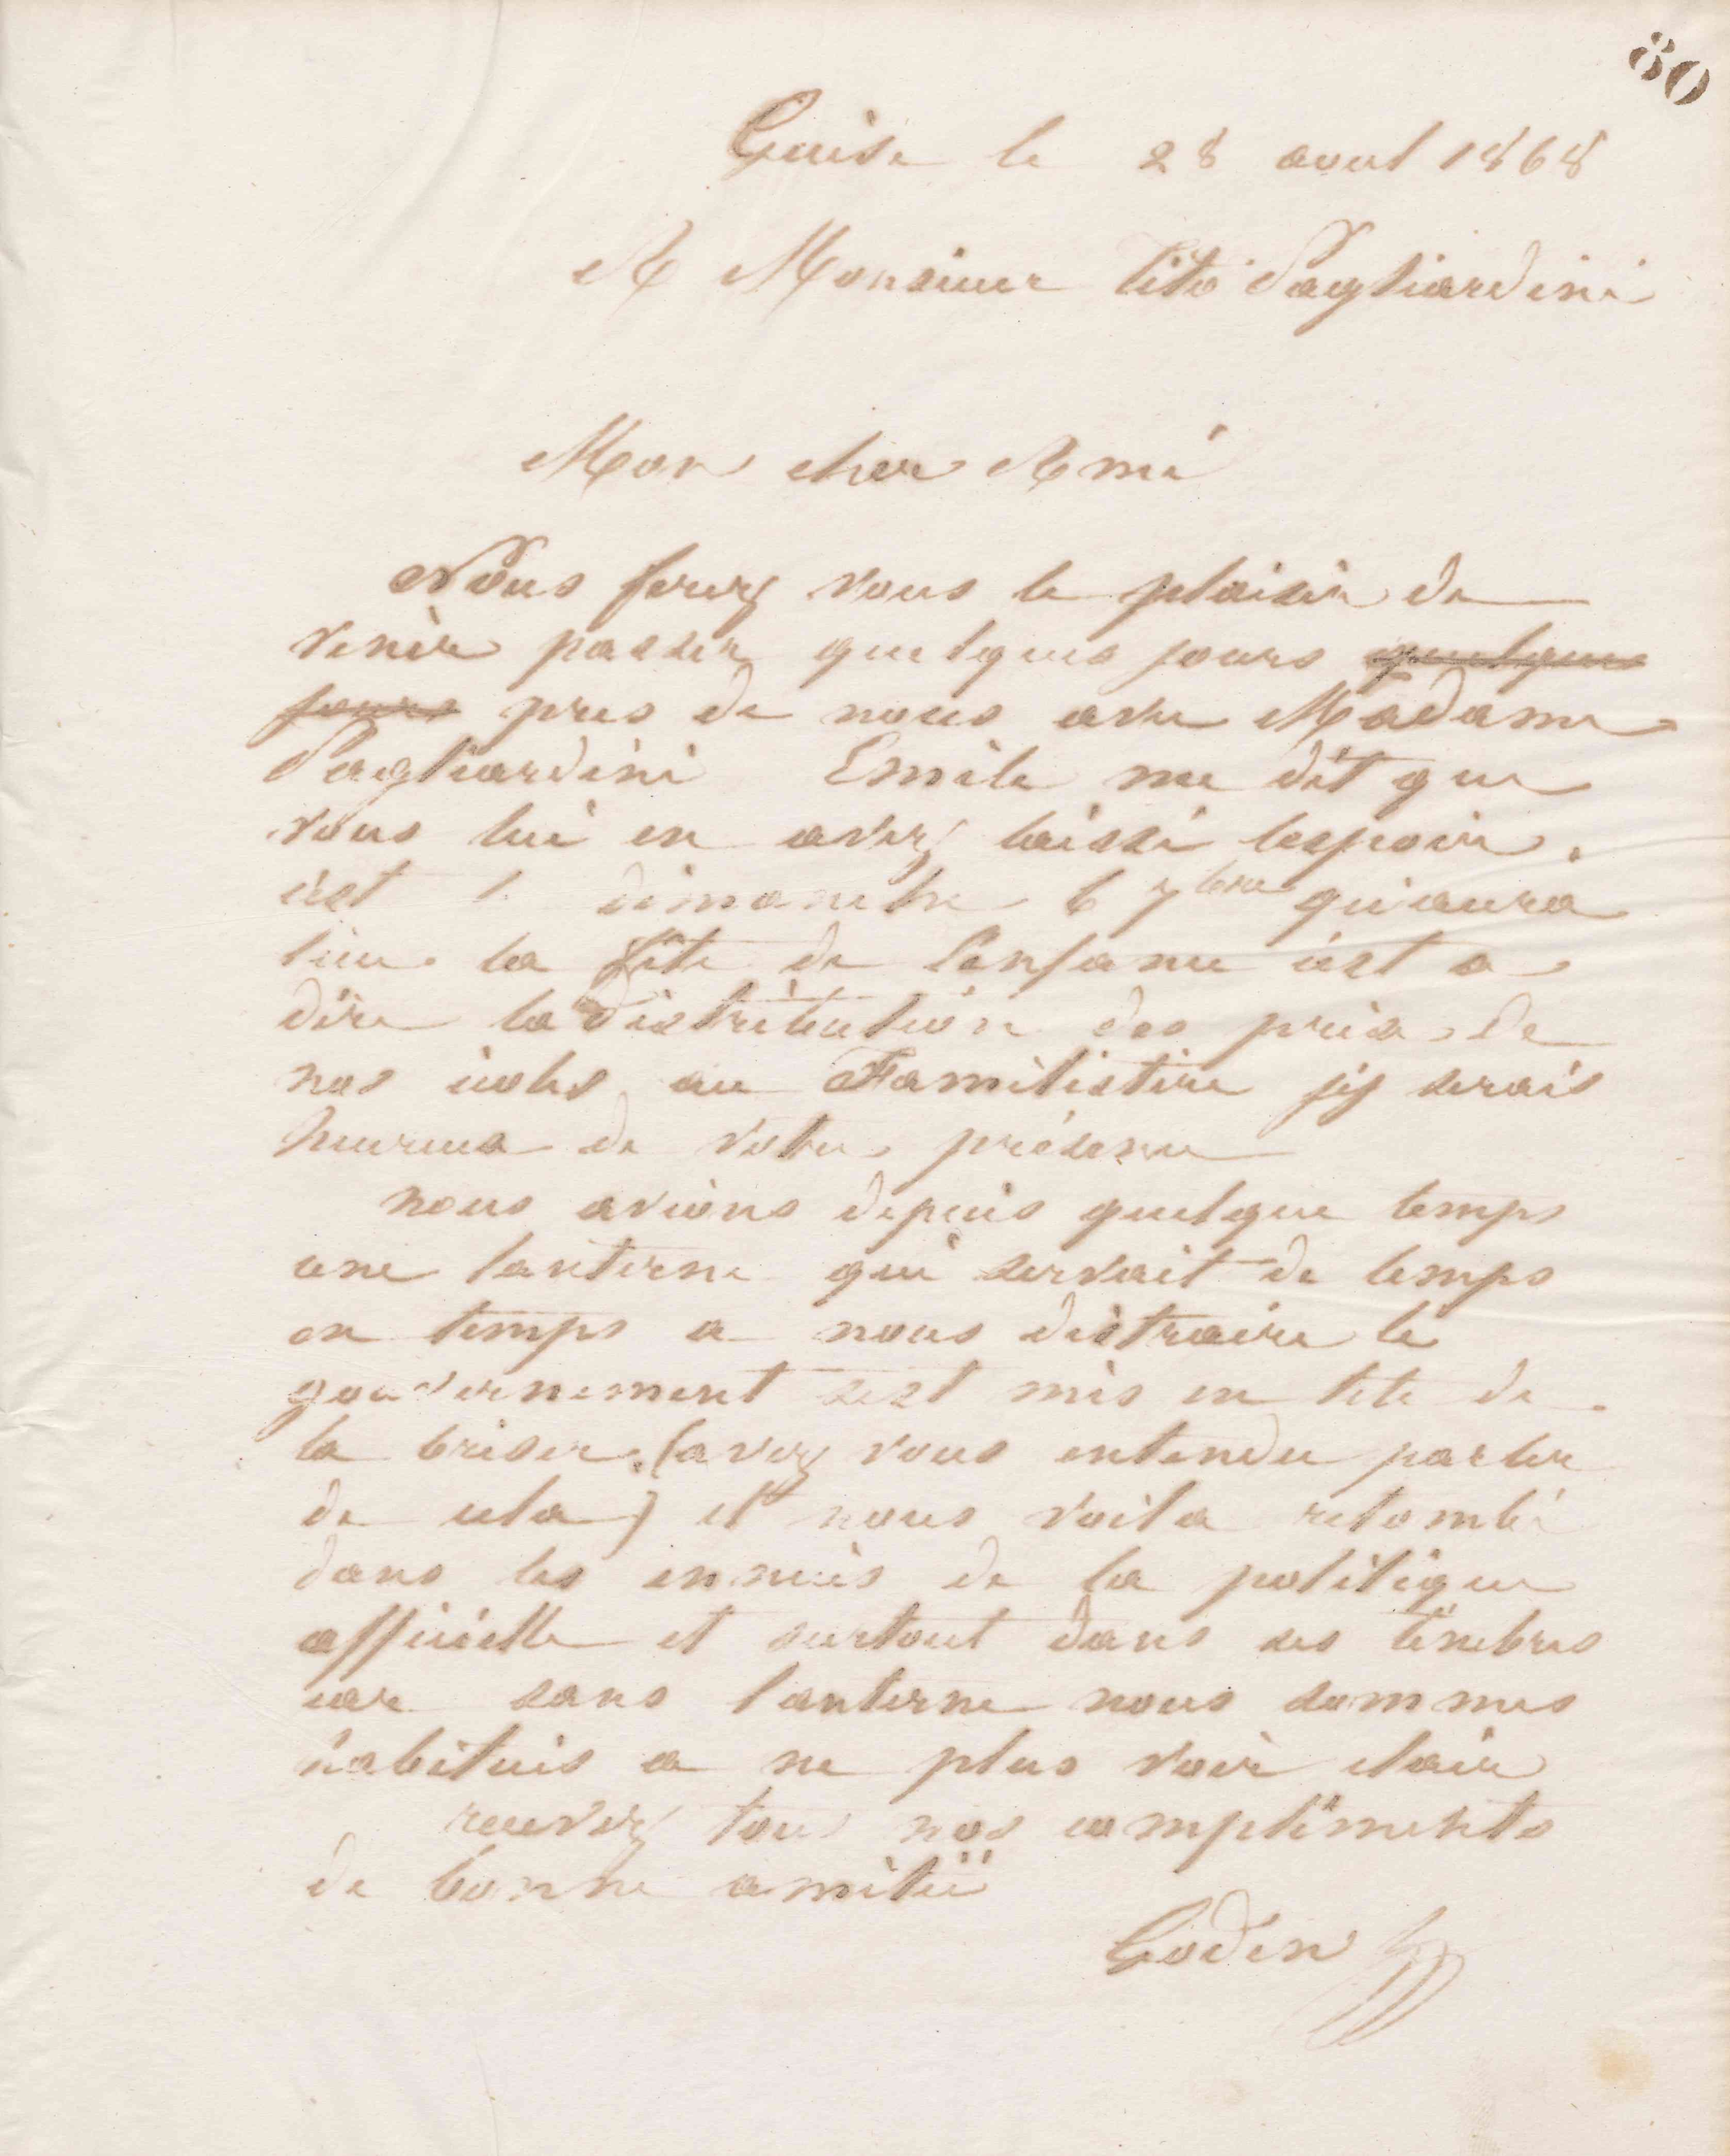 80
Guise le 28 aout 1868
A Monsieur Tito Pagliardini
Mon cher Ami
Nous ferez vous le plaisir de
venir passer quelques jours quelques
jours pres de nous avec Madame
Pagliardini Emile me dit que
vous lui en avez laissé lespoir.
cest le dimanche 6 7bre qu'aura
lieu la fête de l'enfance c'est a
dire la distribution des prix de
nos écoles au Familistère j'y serais
heureux de votre présence
nous avions depuis quelque temps
une lanterne qui servait de temps
en temps a nous distraire le
gouvernement sest mis en tete de
la briser. (avez vous entendu parler
de cela) et nous voila retombé
dans les ennuis de la politique
officielle et surtout dans ses ténèbres
car sans lanterne nous sommes
habitués a ne plus voir clair
recevez tous nos compliments
de bonne amitié
Godin